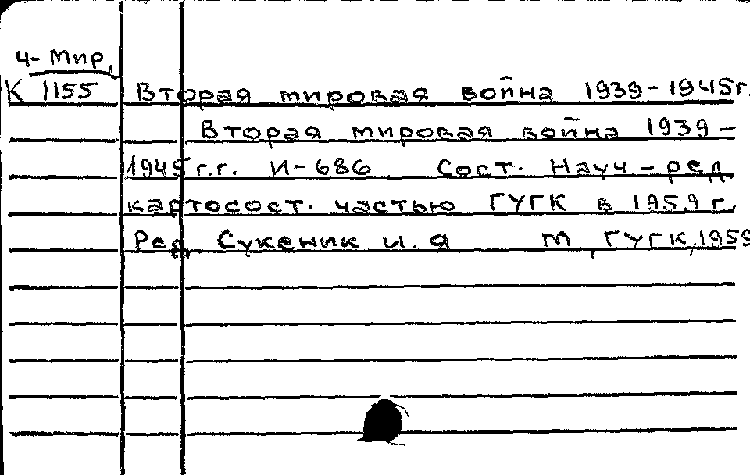 4- Мир,
К 1155 Вторая мировая война 1939-1945г.
Вторая мировая война 1939-
1945г.г. И-686 Сост. Науч-ред.
картосост. частью ГУГК в 1959 г.
Ред. Сукеник И. Я М, ГУГК, 1959